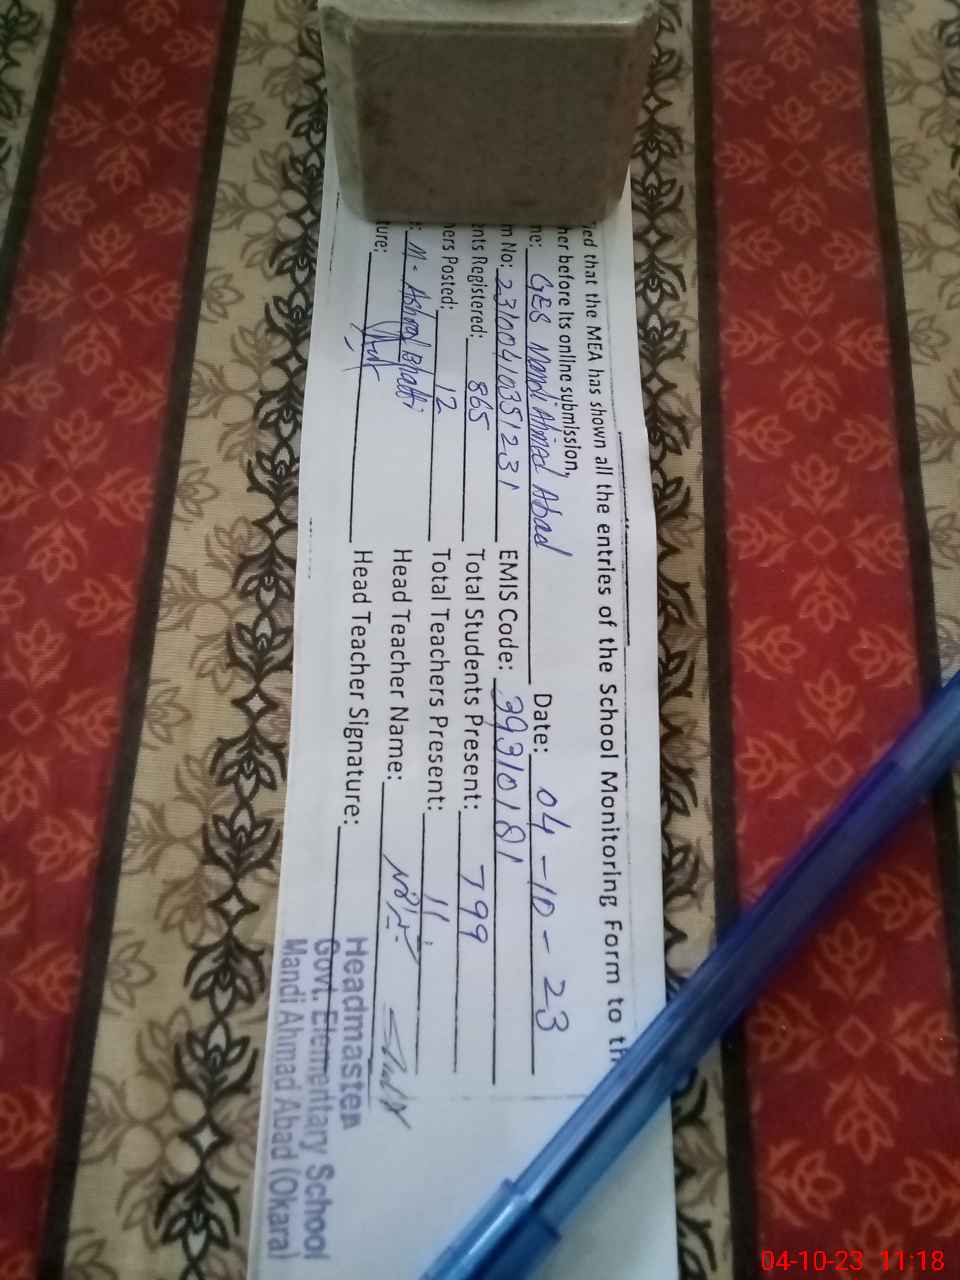 ied that the MEA has shown all the entries of the School Monitoring Form to th
her before its online submission.
ne: GES Mandi Ahmed Abad Date: 04-10-23
m No: 23100410351231 EMIS Code: 39310181
nts Registered: 865 Total Students Present: 799
hers Posted: 12 Total Teachers Present: 11
: M. Ashraf Bhatti Head Teacher Name:
ture: Head Teacher Signature:
Headmaster
Govt. Elementary School
Mandi Ahmad Abad (Okara)
04-10-23 11:18